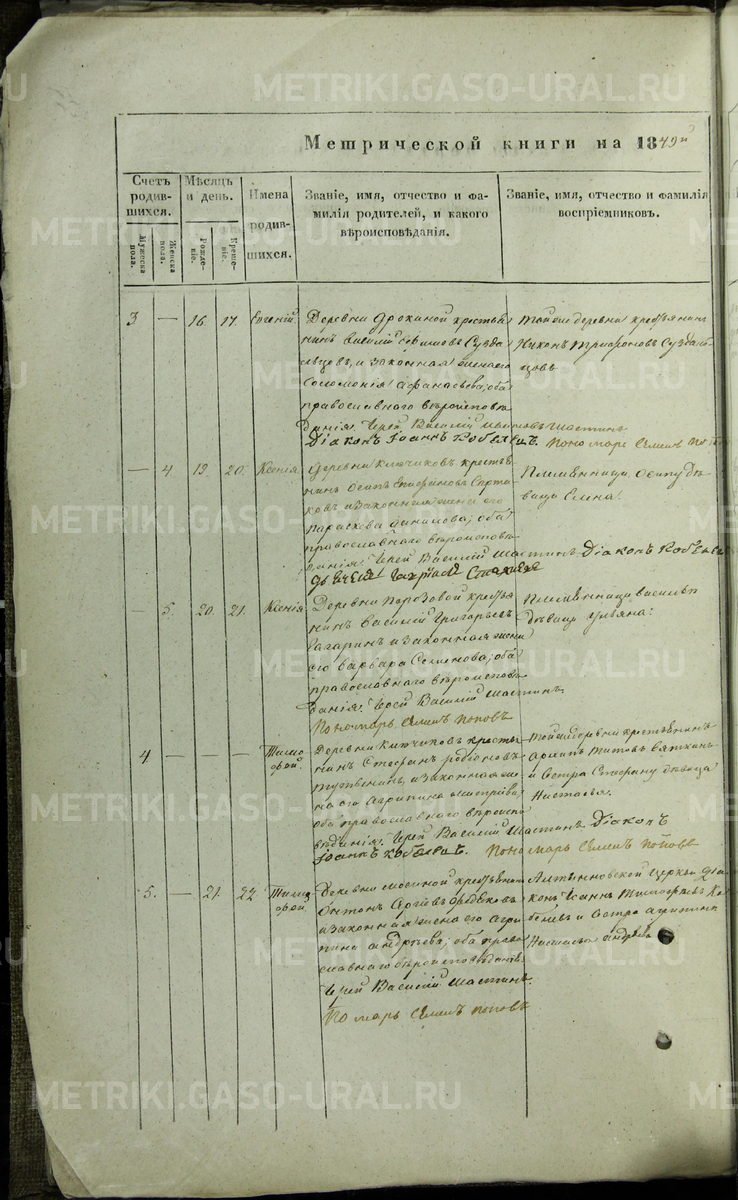 METRIKI.GASO-URAL.RU
Метрической книги на 1849й
Счетъ родившихся.
Мужеска пола.
Женска пола.
Мѣсяцъ и день.
Рожденіе.
Крещеніе.
Имена родившихся.
Званіе, имя, отчество и фамилія родителей, и какого вѣроисповѣданія.
Званіе, имя, отчество и фамилія воспріемниковъ.
3 — 16. 17. Евгеній
Деревни крестья
нинъ Василій Сузда
льцовъ, и законная жена его
Соломонія Афанасьева; оба
православнаго вѣроисповѣ
данія. Іерей Василій Шастинъ
Діаконъ Іоаннъ Кобелевъ. Пономарь Семенъ Поповъ
Тойже деревни крестьянинъ
Никонъ Трифоновъ Суздаль
цовъ
— 4. 19. 20. Ксенія.
Деревни Ключиковъ крестья
нинъ Осипъ
ковъ и законная жена его
Параскева Данилова; оба
православнаго вѣроисповѣ
данія. Іерей Василій Шастинъ Діаконъ Кобелевъ
Племянница Осипу дѣ
вица Елена.
— 5. 20. 21. Ксенія.
Деревни крестья
нинъ Василій Григорьевъ
Гагаринъ и законная жена
его Варвара Семенова; оба
православнаго вѣроисповѣ
данія. Іерей Василій Шастинъ
Пономарь Семенъ Поповъ
Племянница Василью
дѣвица Ульяна.
4 — — — Тимофей.
Деревни Ключиковъ крестья
нинъ Стефанъ Родіоновъ
и законная же
на его Агрипина
оба православнаго вѣроиспо
вѣданія. Іерей Василій Шастинъ Діаконъ
Іоаннъ Кобелевъ. Пономарь Семенъ Поповъ
Тойже деревни крестьянинъ
Титовъ Вяткинъ
и сестра Стефану дѣвица
Настасья.
5. — 21. 22. Тимофей.
Деревни крестьянинъ
Антонъ
и законная жена его Агри
пина Андреева; оба право
славнаго вѣроисповѣданія.
Іерей Василій Шастинъ.
Пономарь Семенъ Поповъ
Алтынновской церкви Діа
конъ Іоаннъ Тимофеевъ Ко
белевъ и сестра Агрипинѣ
Настасья Андреева